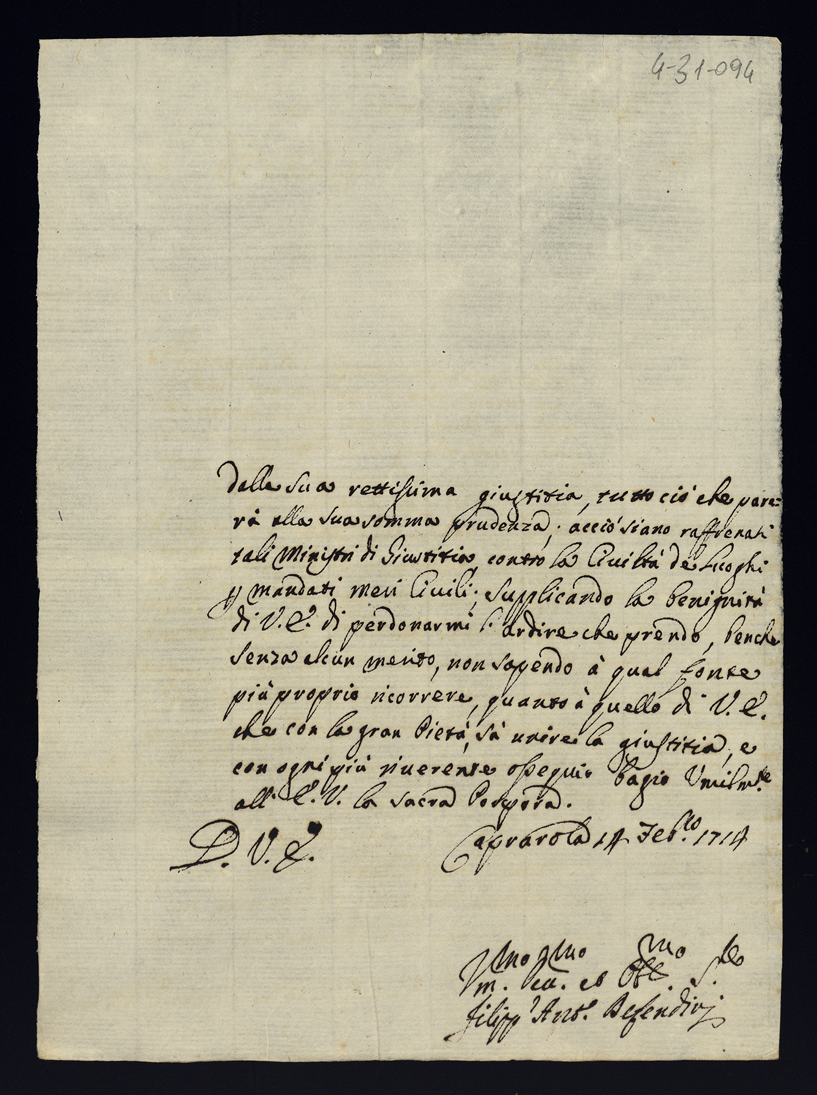 4-31-094
Dalla sua rettissima giustitia, tutto ciò che pare=
rà alla sua somma prudenza, acciò siano raffrenati
tali Ministri di Giustitia, contro la Civiltà de Luoghi
p mandati meri Civili; supplicando la benignità
di V. E. di perdonarmi l'ardire che prendo, benche
senza alcun merito, non sapendo à qual fonte
più proprio ricorrere, quanto à quello di V. E.
che con la gran Pietà, sà unire la giustitia, e
con ogni più riuerente ossequio bagio Vmilmte
all'E. V. la sacra Porpora.
D. V. E.
Caprarola 14 Febro. 1714
Vmo. Deuo. et Obbmo Sre
Filipp' Anto.